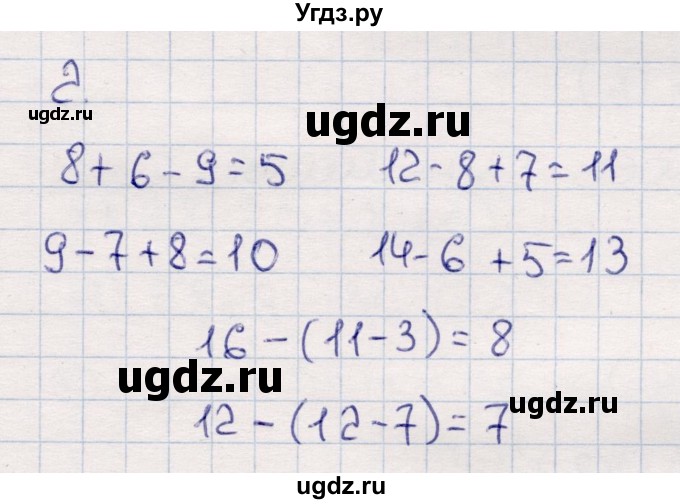 Угдз.ру
2.
ugdz.ru
ugdz.ru
8+6-9=5 12-8+7=11
9-7+8=10 14-6+5=13
16-(11-3)=8
ugdz.ru
12-(12-7)=7
ugdz.ru
ugdz.ru